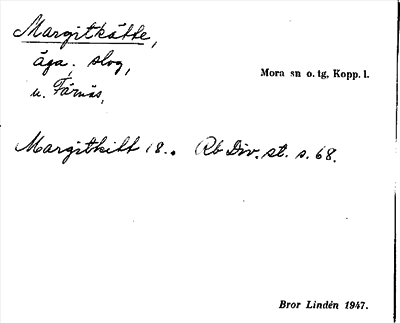 Margitkätte,
äga. slog,
u. Färnäs,
Mora sn o. tg, Kopp. l.
Margitkitt 18.. Rb Div. st. s. 68.
Bror Lindén 1947.